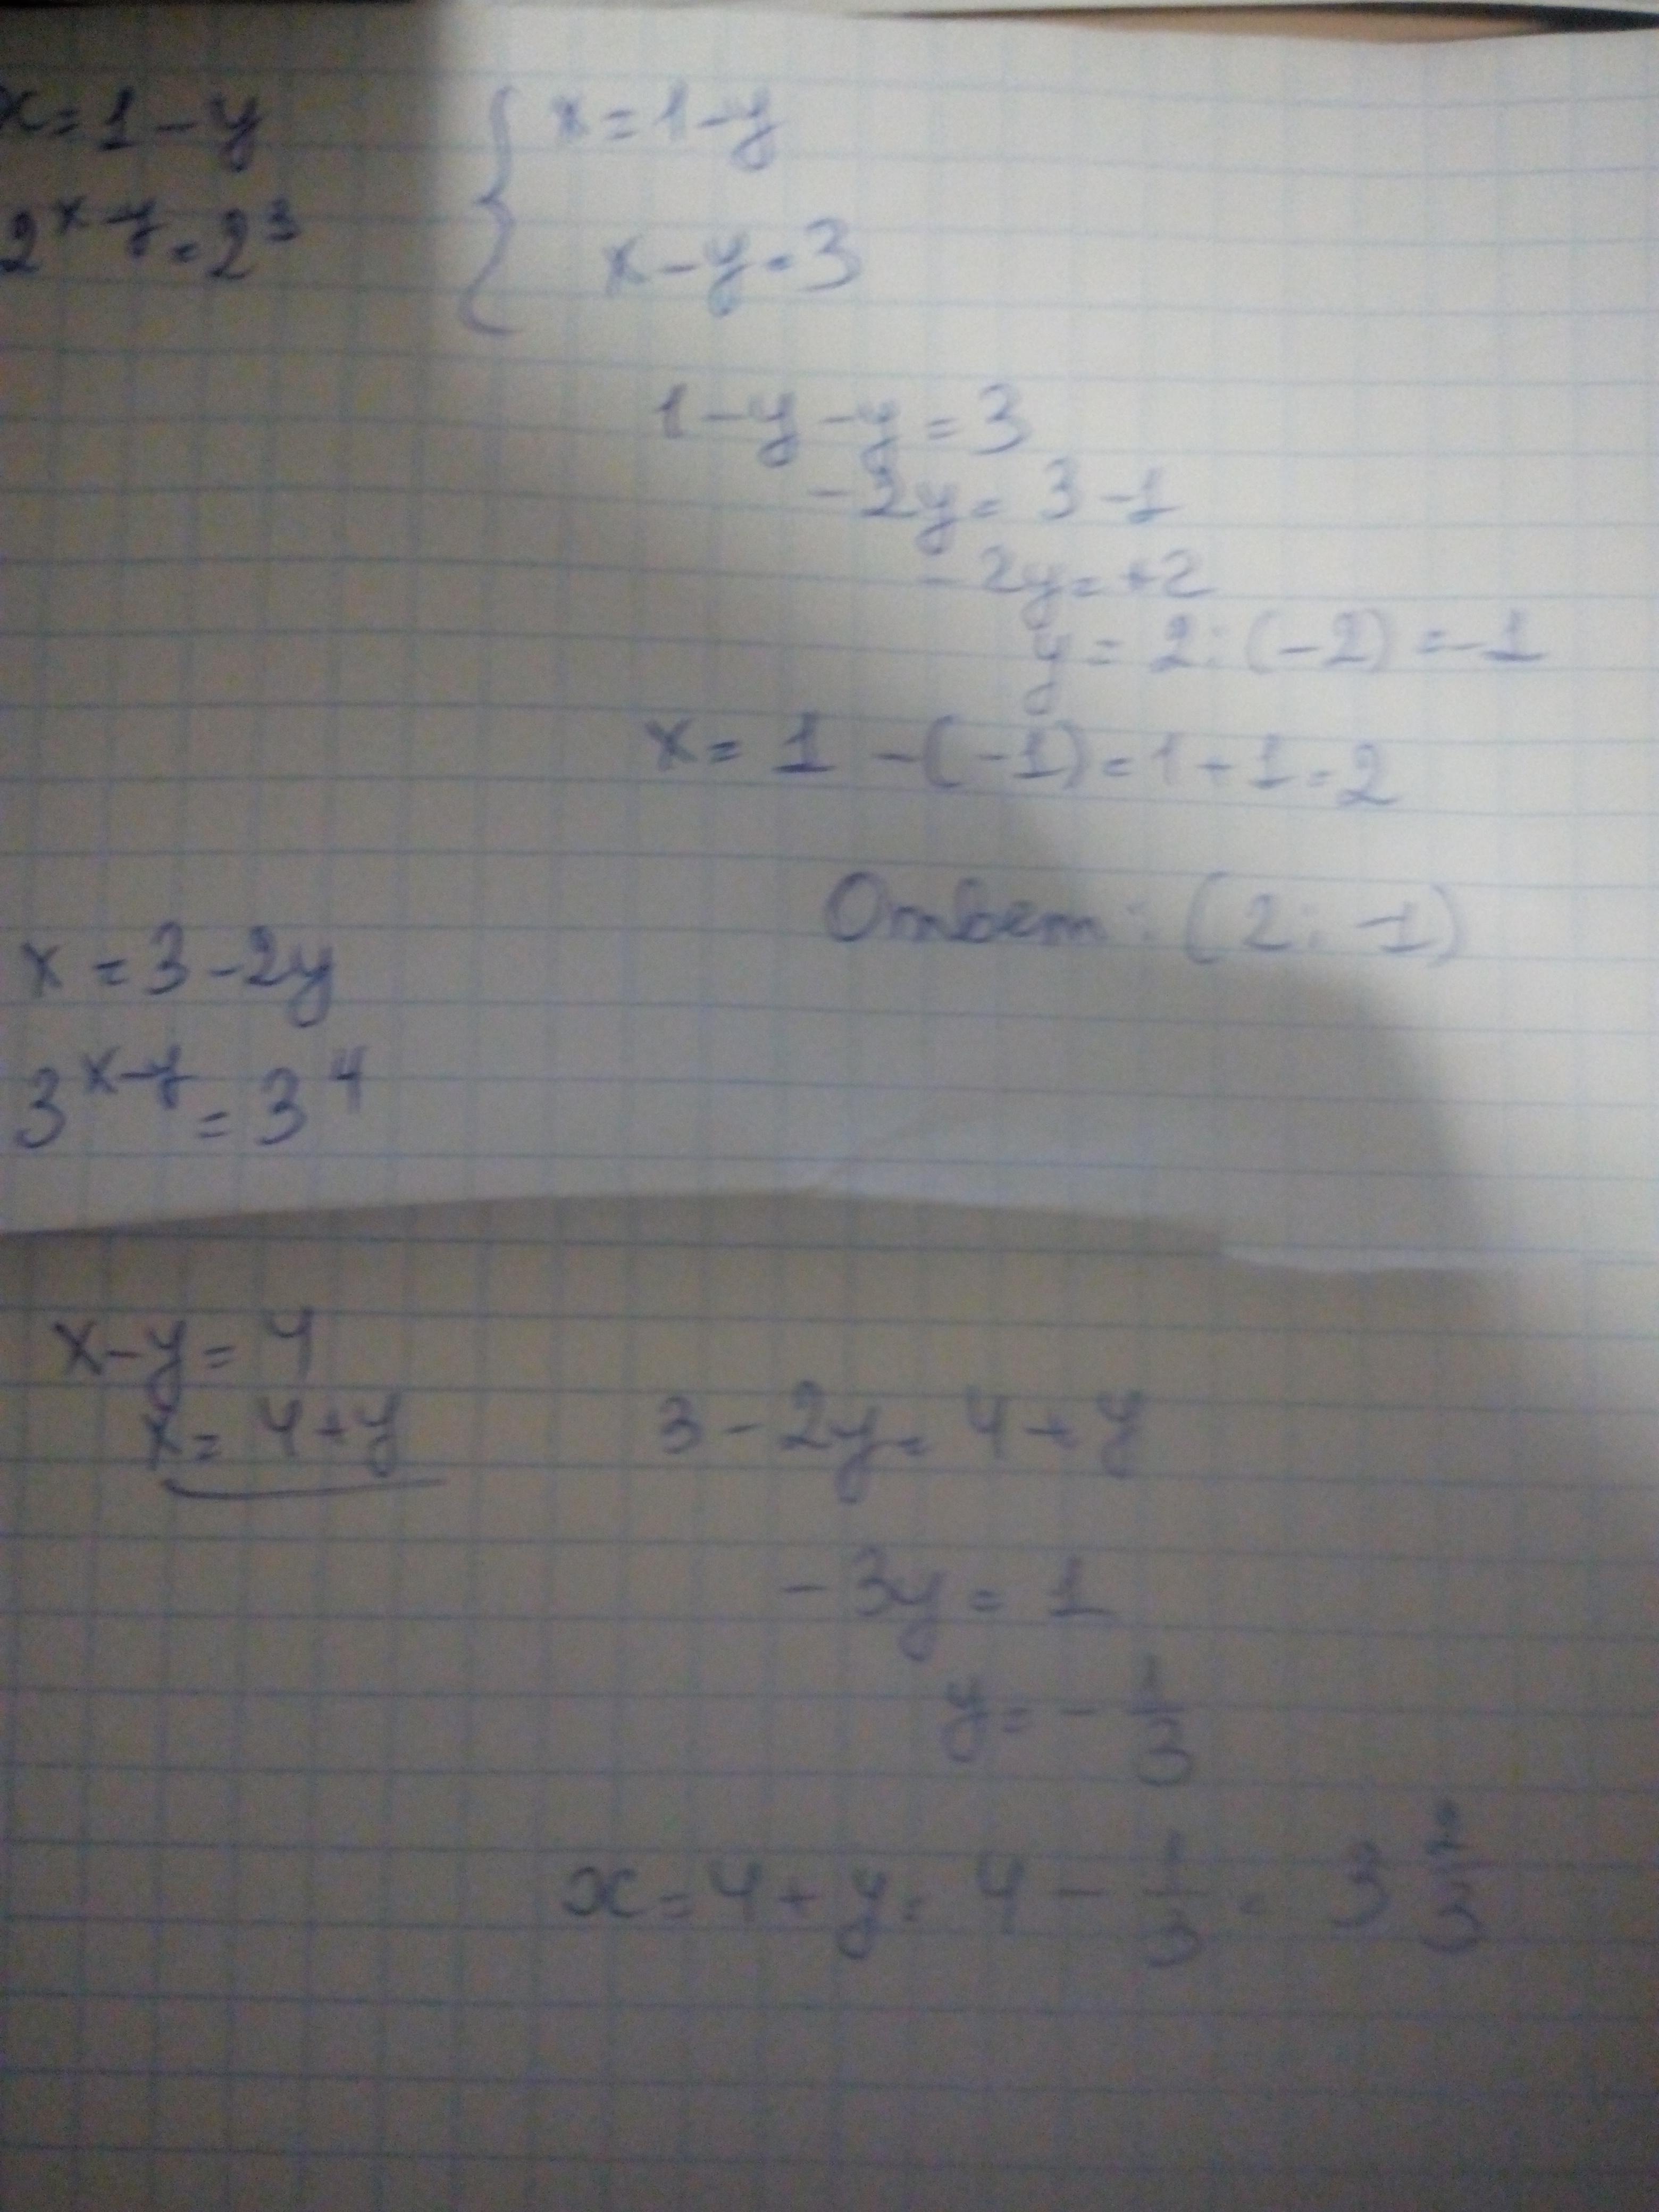 x=1-y
2^{x-y}=2^3
{ x=1-y
x-y=3
1-y-y=3
-2y=3-1
-2y=+2
y=2:(-2)=-1
x=1-(-1)=1+1=2
Ответ: (2; -1)
x=3-2y
3^{x-y}=3^4
x-y=4
x=4+y
3-2y=4+y
-3y=1
y=-\frac{1}{3}
x=4+y=4-\frac{1}{3}=3\frac{2}{3}